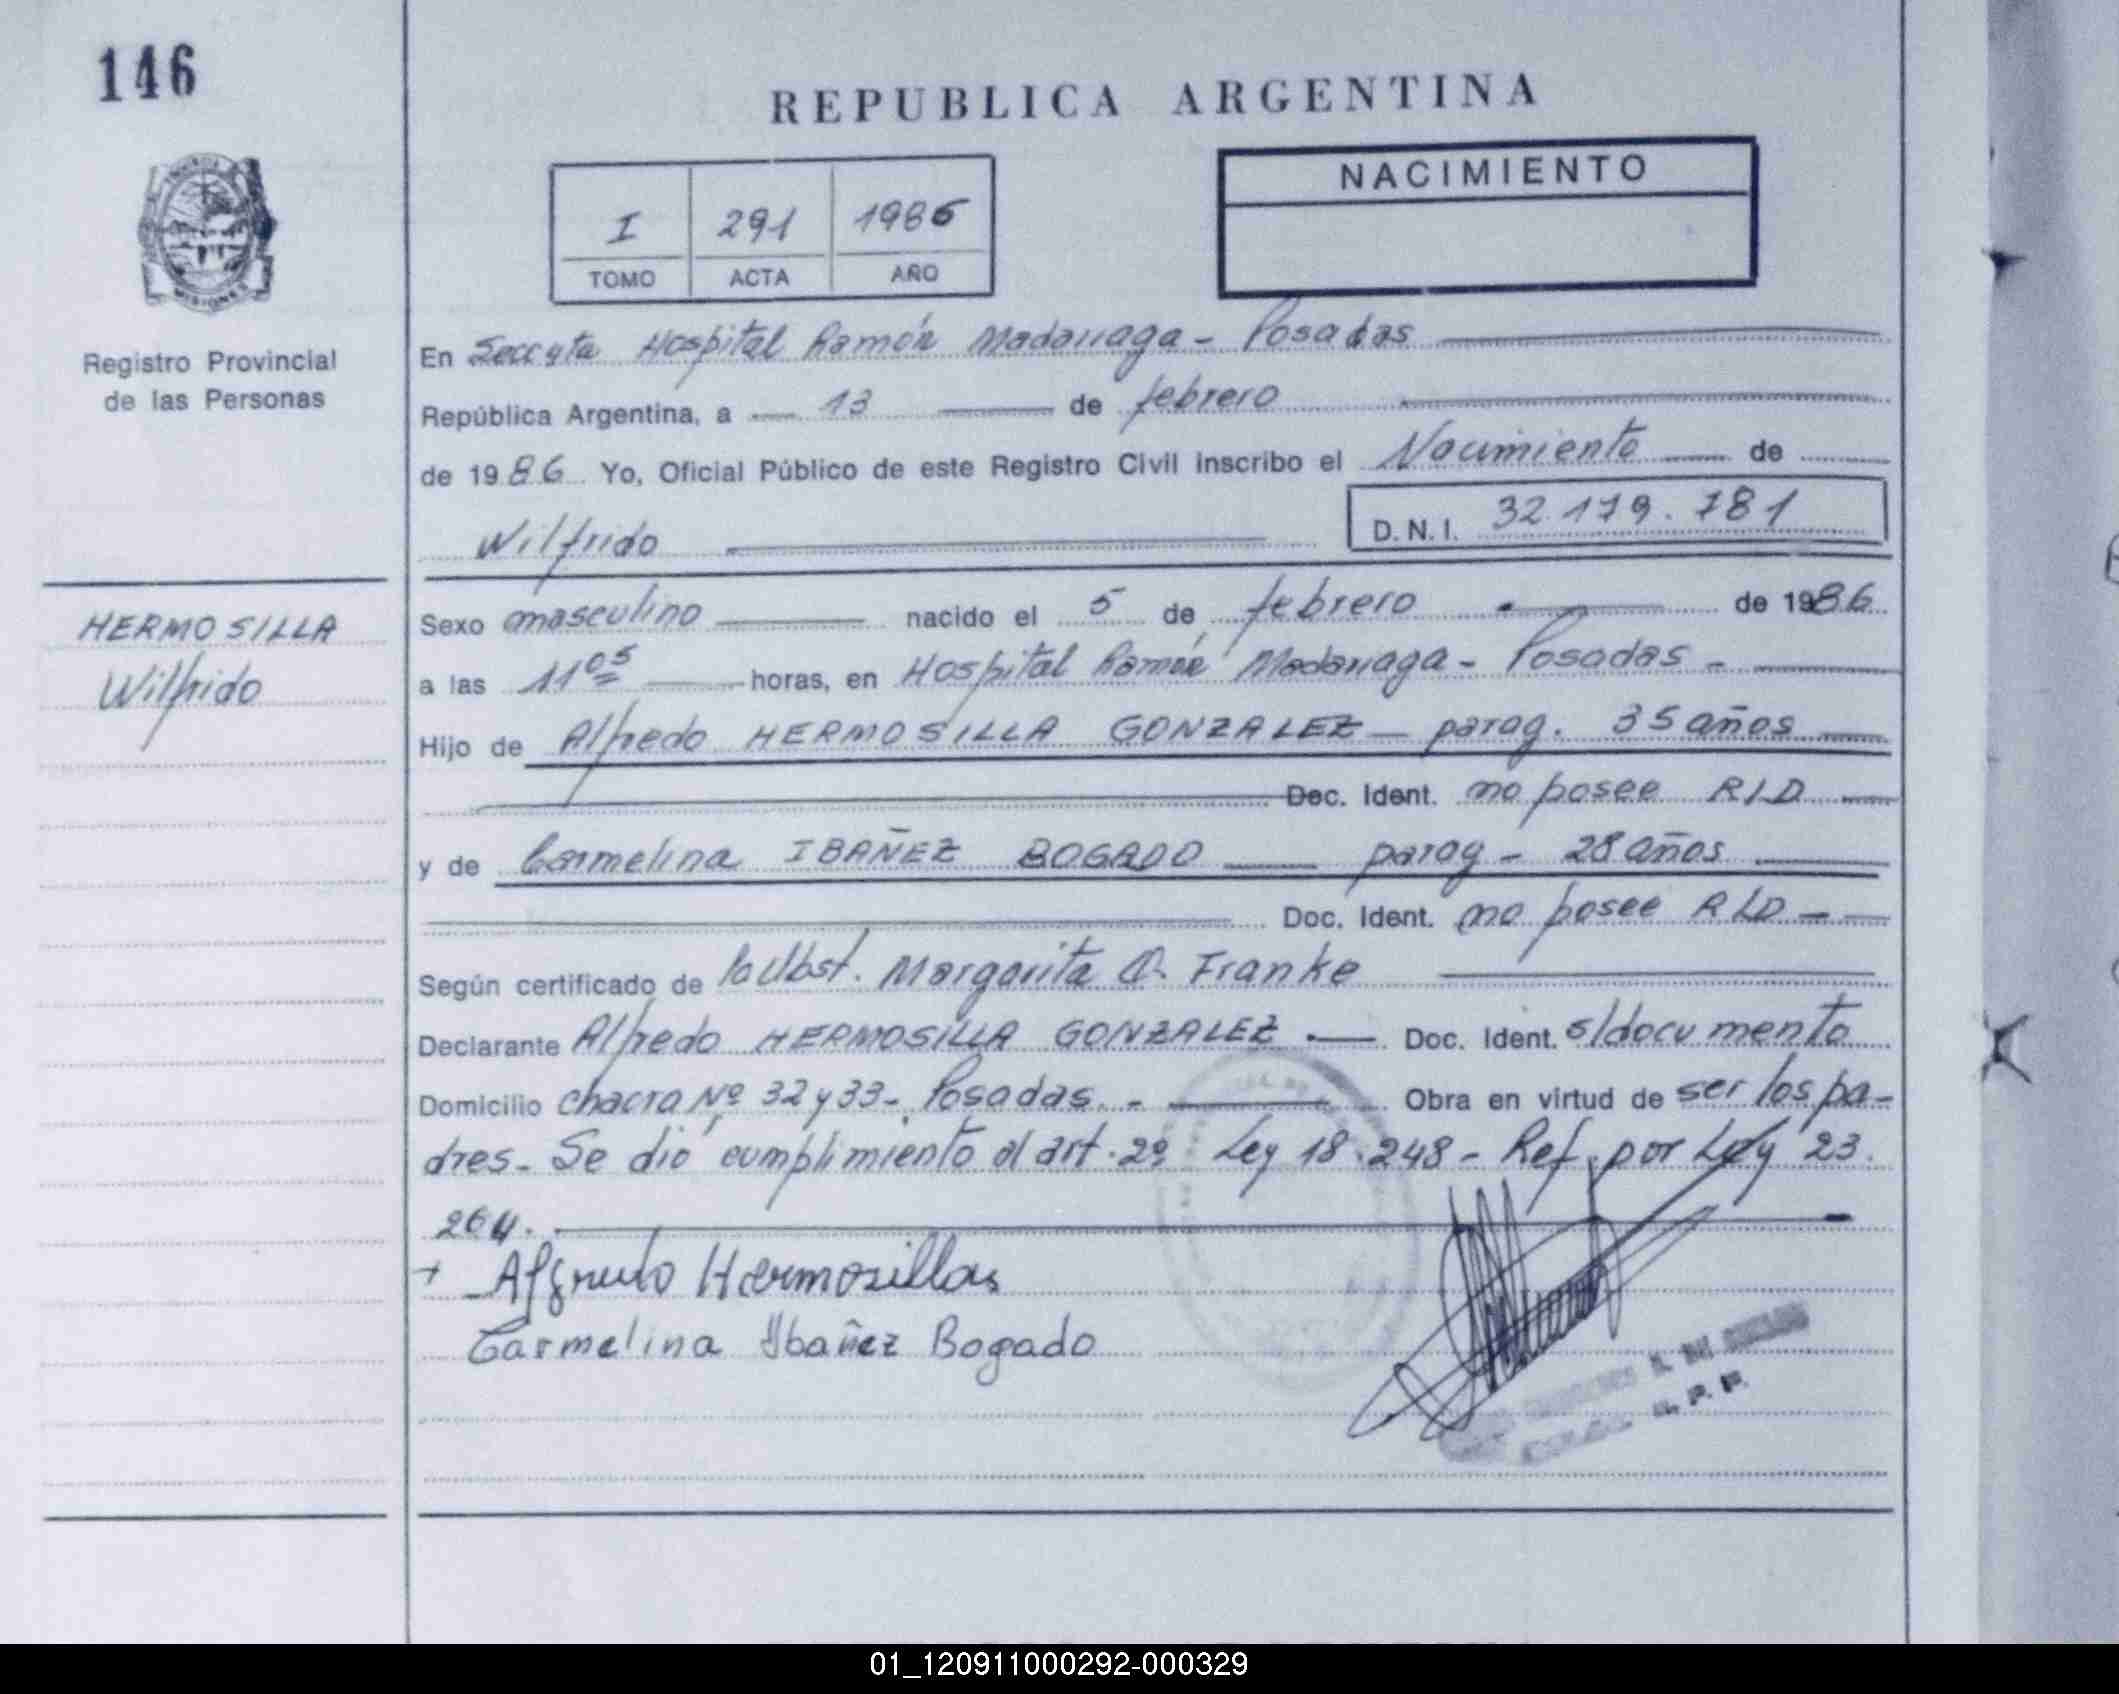 146
REPUBLICA ARGENTINA
NACIMIENTO
I 291 1986
TOMO ACTA AÑO
MISIONES
Registro Provincial
de las Personas
En Hospital Ramón Madariaga - Posadas
República Argentina, a 13 de febrero
de 1986 Yo, Oficial Público de este Registro Civil inscribo el Nacimiento de
Wilfrido
D. N. I. 32.179.781
HERMOSILLA
Wilfrido
Sexo masculino nacido el 5 de febrero de 1986
a las 11 05 horas, en Hospital Ramón Madariaga - Posadas -
Hijo de Alfredo HERMOSILLA GONZALEZ - parag. 35 años
Doc. Ident. no posee RLD
y de Carmelina IBAÑEZ BOGADO parag - 28 años
Doc. Ident. no posee RLD -
Según certificado de Margarita O. Franke
Declarante Alfredo HERMOSILLA GONZALEZ.- Doc. Ident. s/documento
Domicilio chacra Nº 32 y 33 - Posadas. - Obra en virtud de ser los pa-
dres - Se dió cumplimiento al art. 2º Ley 18.248 - Ref. por Ley 23.
264.
Hermosillas
Carmelina Ibañez Bogado
01_120911000292-000329